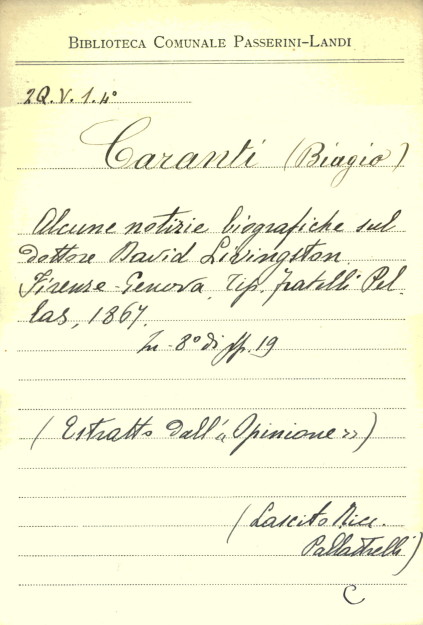 BIBLIOTECA COMUNALE PASSERINI-LANDI
2Q.V.1.4°
Caranti (Biagio)
Alcune notizie biografiche sul
dottore David Livingston.
Firenze-Genova, Tip. fratelli Pel-
las, 1867.
In-8° di pp. 19
(Estratto dall'«Opinione»)
(Lascito
Pallastrelli)
C